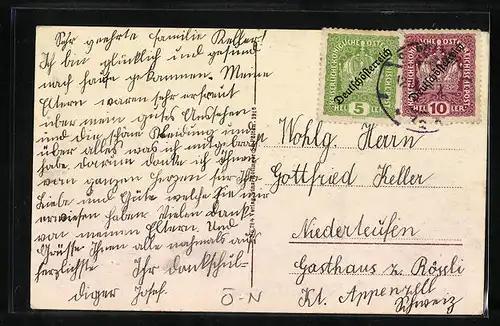 Sehr geehrte Familie Keller!
Ich bin glücklich und gesund
nach hause gekommen. Meine
Eltern waren sehr erfreut
über mein gutes Aussehen
und die schöne Kleidung und
über alles was ich mitgebracht
habe. Darum danke ich Ihnen
vom ganzen Herzen für Ihre
Liebe und Güte welche Sie mir
erwiesen haben. Vielen Dank
von meinen Eltern. Und
Grüsse Ihnen alle nochmals auf
herzlichste Ihr dankschul-
diger Josef.
Ö-N
Deutschösterreich
5
HEL LER
Deutschösterreich
10
HEL LER
Wohlg. Herrn
Gottfried Keller
Niederteufen
Gasthaus z. Rössli
Kt. Appenzell
Schweiz